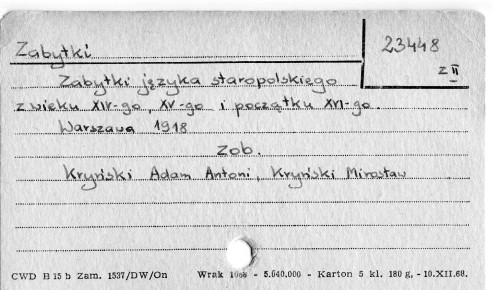 Zabytki
23448
z II
Zabytki języka staropolskiego
z wieku XIV-go, XV-go i początku XVI-go.
Warszawa 1918
Zob.
Kryński Adam Antoni, Kryński Mirosław
CWD B 15 b Zam. 1537/DW/On Wrak 1968 - 5.040.000 - Karton 5 kl. 180 g, - 10.XII.68.